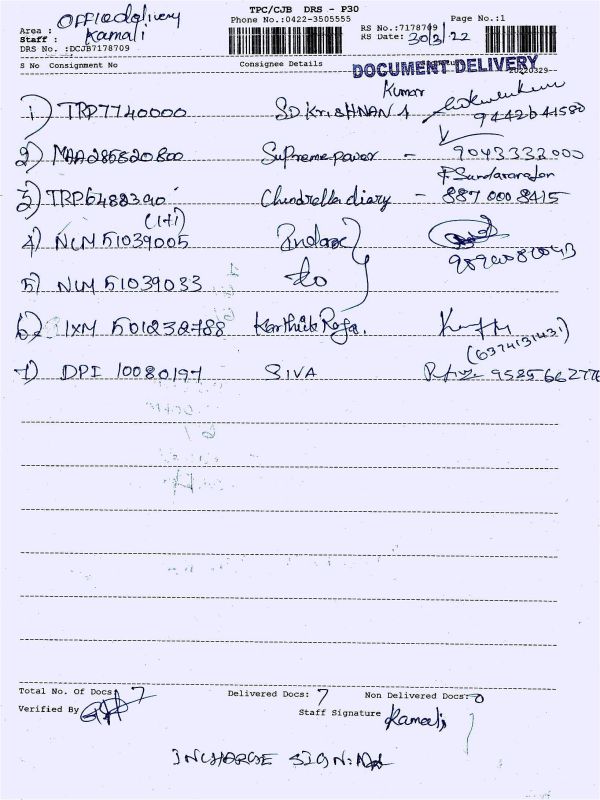 TPC/CJB DRS - P30
Area : Office delivery
Phone No.:0422-3505555
RS No.:7178709
Page No.:1
Staff : Kamali
RS Date: 30/3/22
DRS No. :DCJB7178709
S No Consignment No Consignee Details Signature
DOCUMENT DELIVERY
20220329
Kumar
1) TRP7740000 S.D. KRISHNAN
9442641580
2) MAA285820800 Supreme power - 9043332000
P Sundararajan
3) TRP6488390 Chindrella diary - 887 000 8415
(1+1)
4) NLM 51039005
5) NLM 51039033 do
6) IXM 501232788 Karthik Raja.
(6374131431)
7) DPI 10080197 SIVA
Total No. Of Docs: 7 Delivered Docs: 7 Non Delivered Docs: 0
Verified By
Staff Signature Kamali
INCHARGE SIGN: